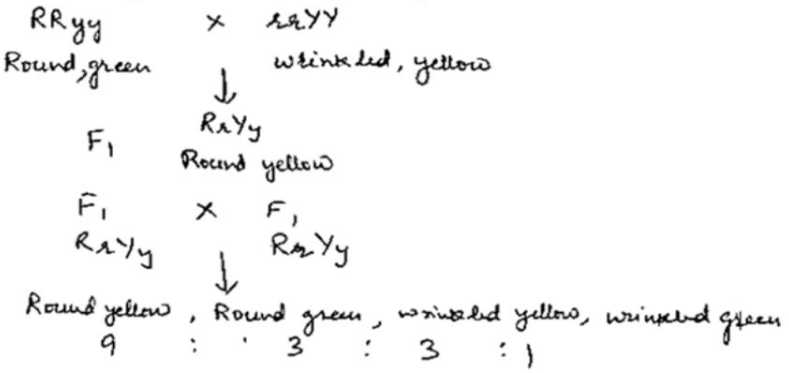 RRyy × rrYY
Round, green wrinkled, yellow
↓
RrYy
F₁
Round yellow
F₁ × F₁
RrYy RrYy
↓
Round yellow, Round green, wrinkled yellow, wrinkled green
9 : 3 : 3 : 1